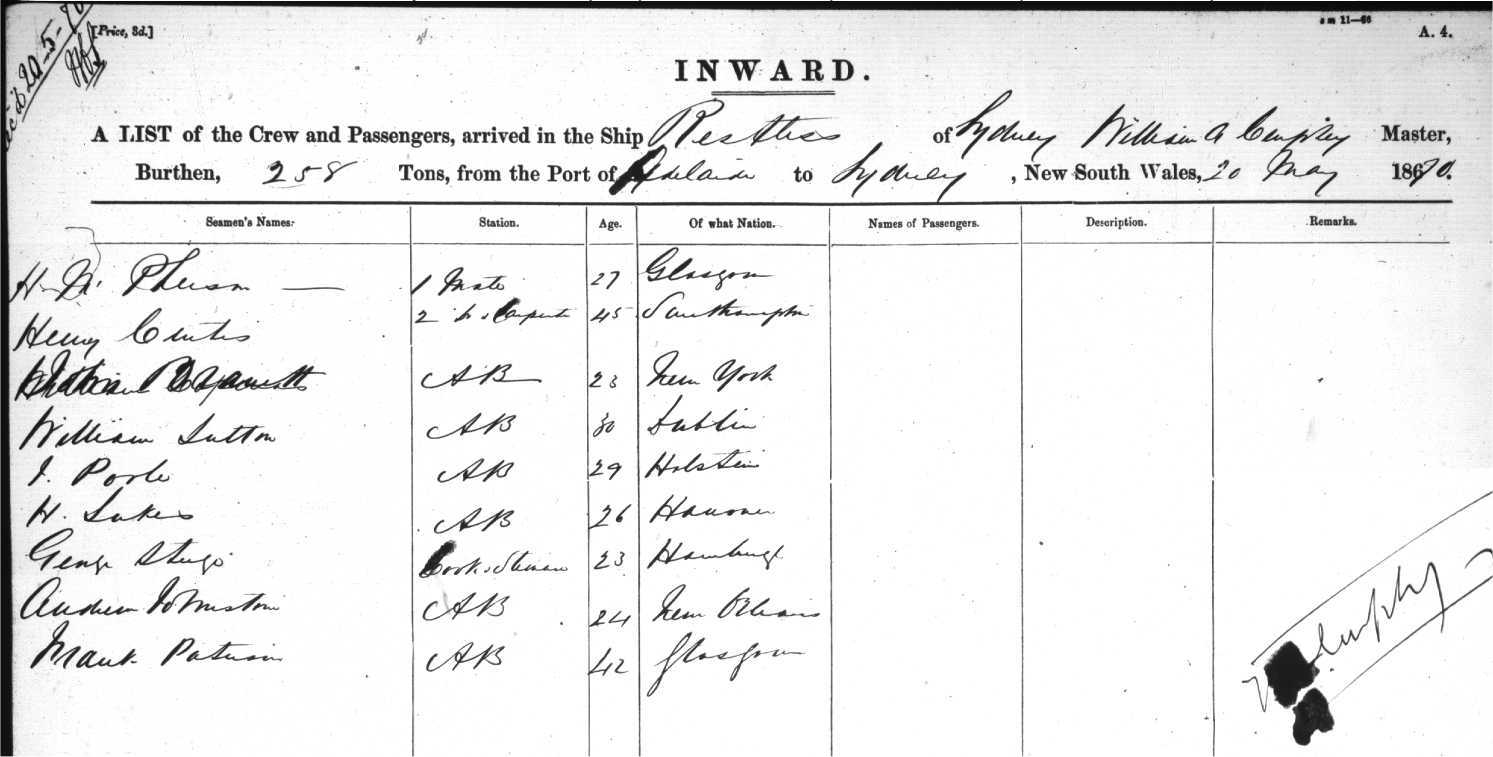 [Price, 3d.]
A. 4.
INWARD.
A LIST of the Crew and Passengers, arrived in the Ship Restless of Sydney William A Master,
Burthen, 258 Tons, from the Port of Adelaide to Sydney, New South Wales, 20 May 1870.
Seamen's Names. Station. Age. Of what Nation. Names of Passengers. Description. Remarks.
H. Mc Pherson — 1 Mate 27 Glasgow
Henry Curtis 2 45 Southampton
AB 23 New York
William Sutton AB 30 Dublin
J. Poole AB 29 Holstein
H. Lukes AB 26 Hanover
George Cook & Steward 23 Hamburgh
Andrew Johnston AB 24 New Orleans
Frank Paterson AB 42 Glasgow